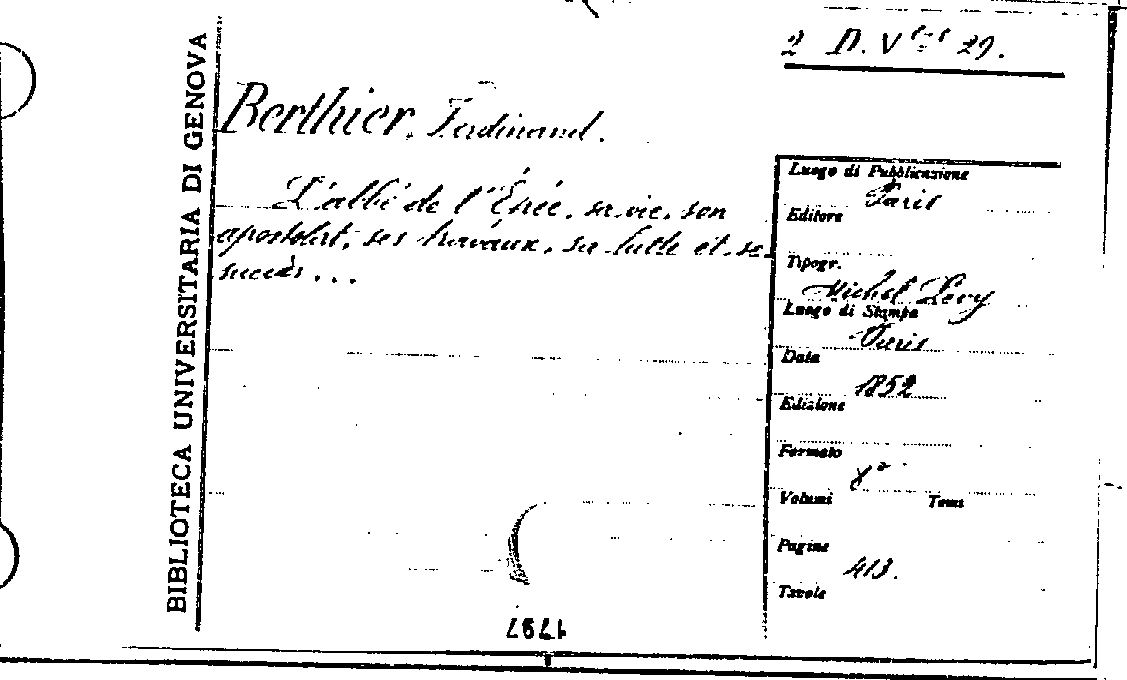 2 D. V 29.
BIBLIOTECA UNIVERSITARIA DI GENOVA
Berthier, Ferdinand.
L'abbé de l'Épée, sa vie, son
apostolat, ses travaux, sa lutte et se
succès...
Luogo di Pubblicazione
Paris
Editore
Tipogr.
Michel Levy
Luogo di Stampa
Paris
Data
1852
Edizione
Formato
8°
Volumi Tomi
Pagine
413.
Tavole
1797